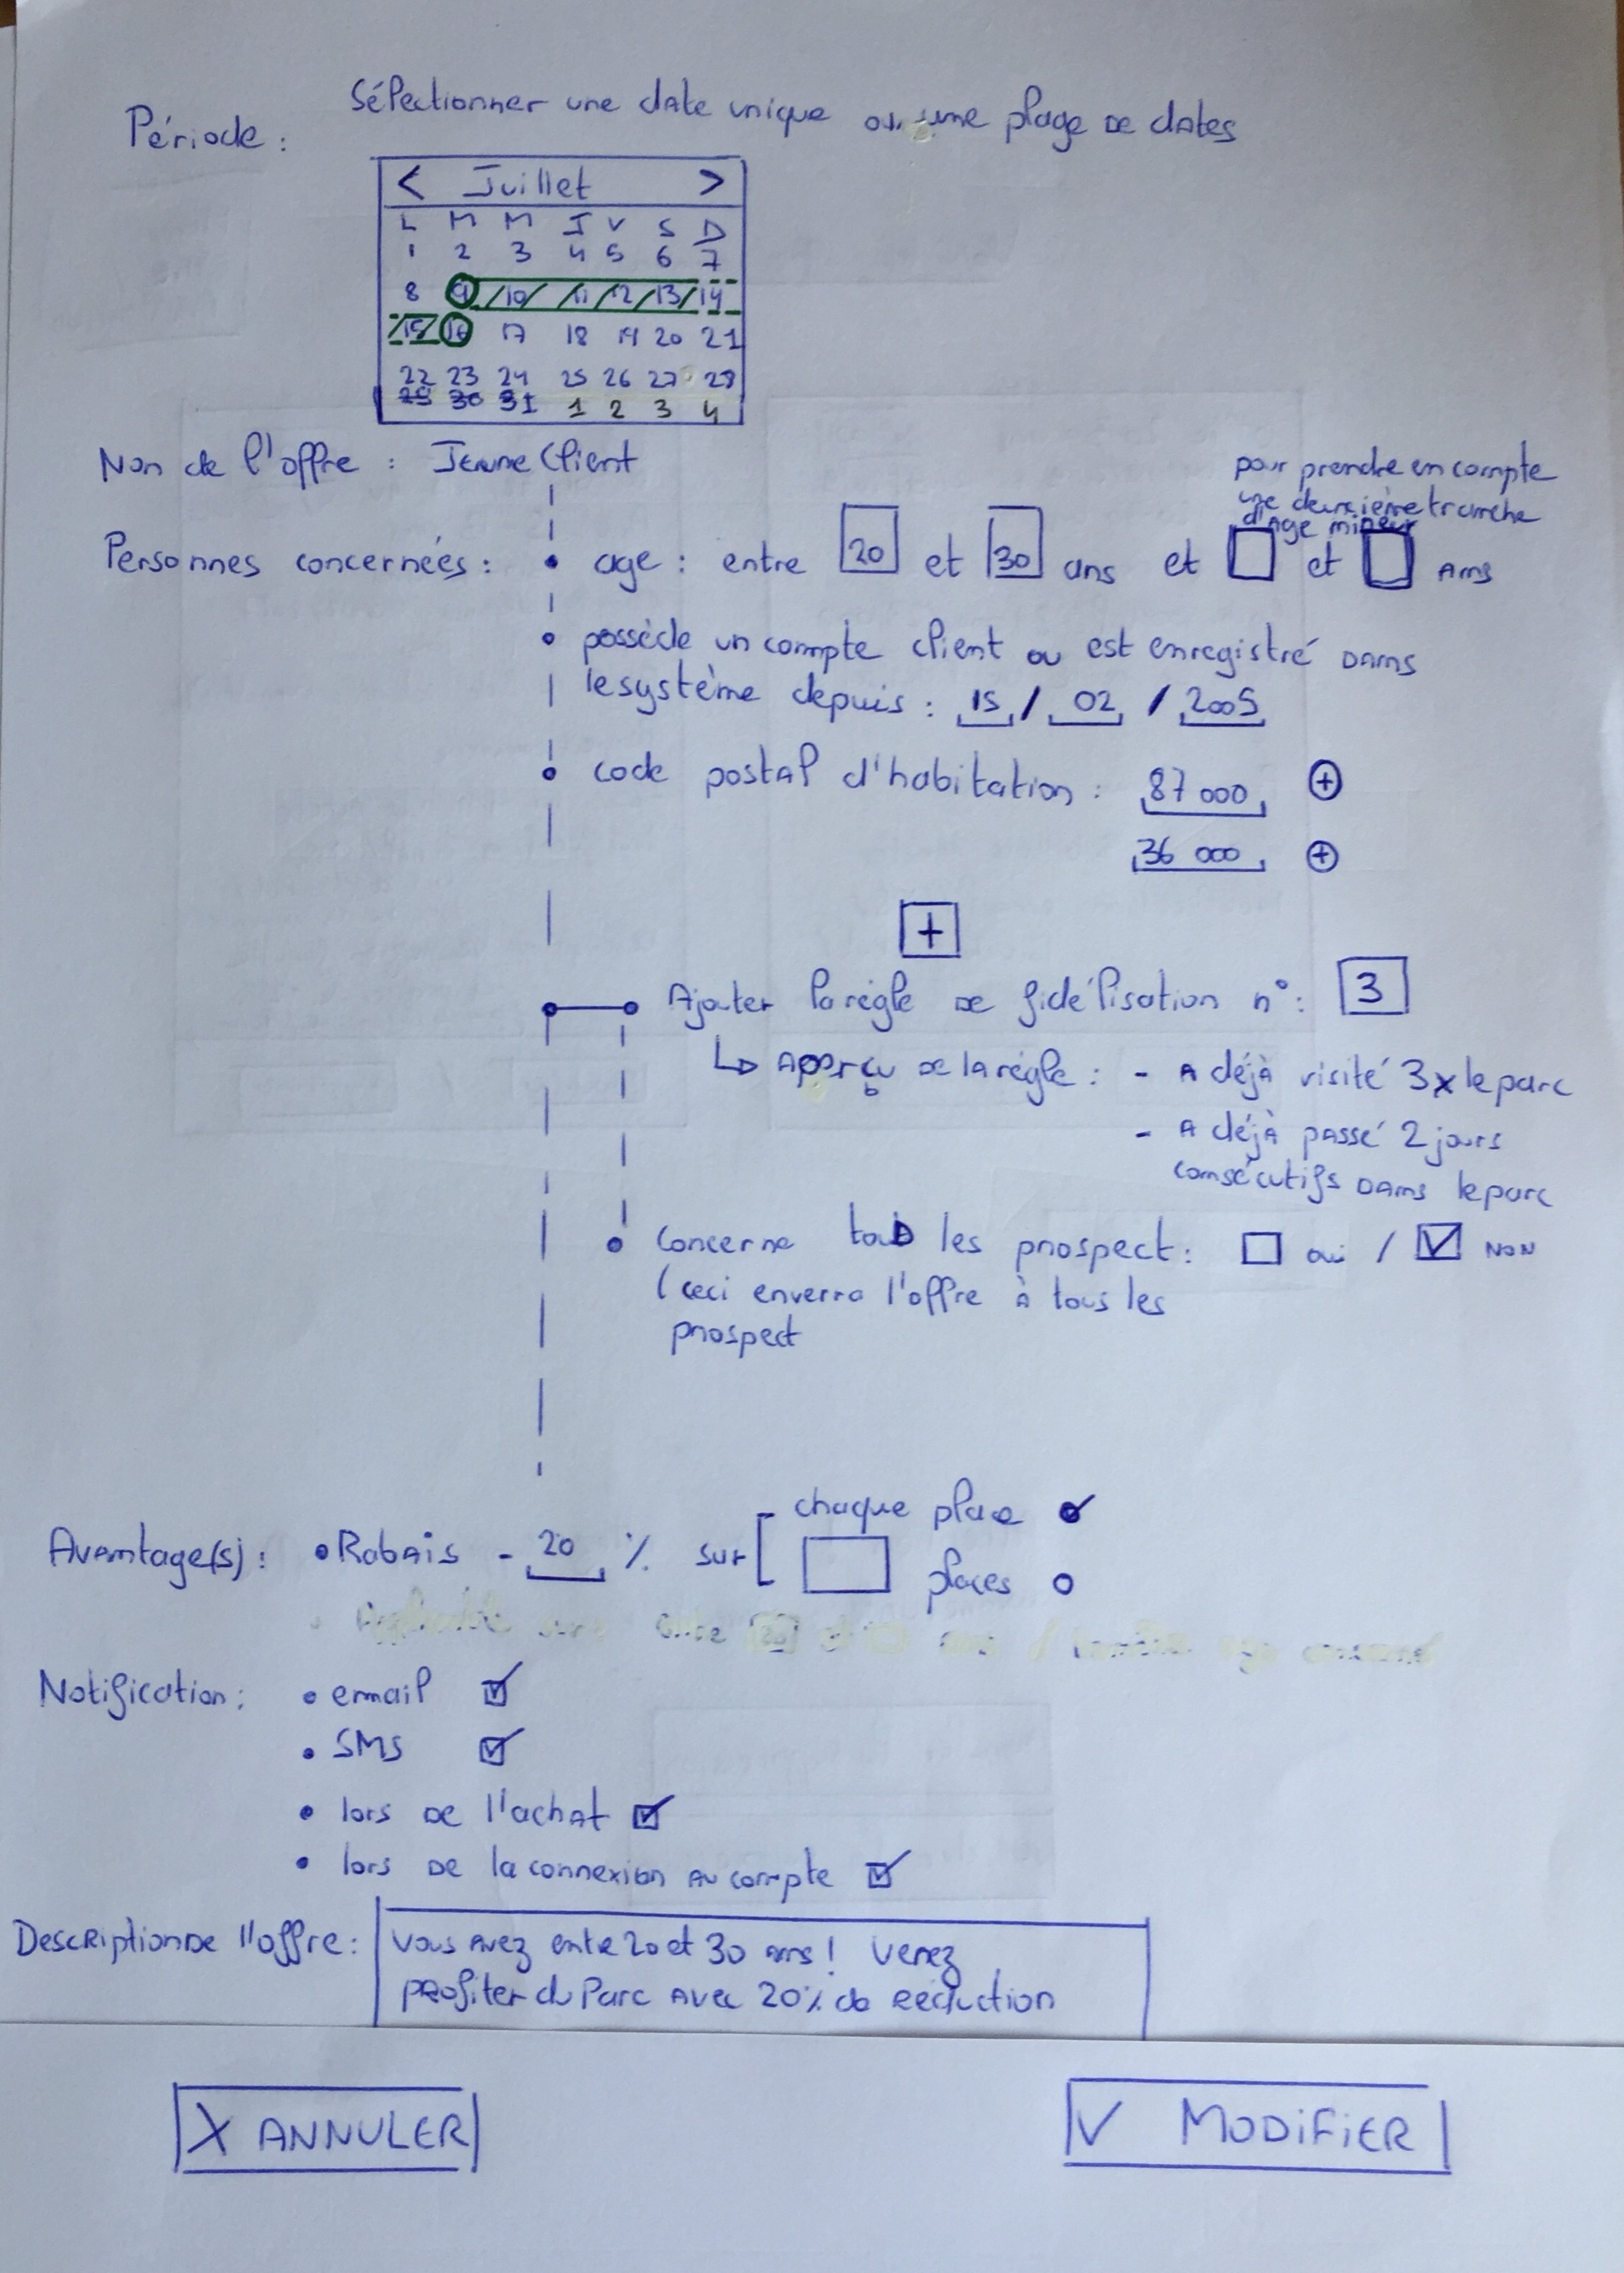 Période :
Sélectionner une date unique ou une plage de dates
< Juillet >
L M M J V S D
1 2 3 4 5 6 7
8 9 10 11 12 13 14
15 16 17 18 19 20 21
22 23 24 25 26 27 28
29 30 31 1 2 3 4
Non de l'offre : Jeune Client
pour prendre en compte
une deuxième tranche
d'age mineur
Personnes concernées : • age : entre 20 et 30 ans et et ans
• possède un compte client ou est enregistré dans
le système depuis : 15 / 02 / 2005
• code postal d'habitation : 87 000 +
36 000 +
+
Ajouter la règle de fidélisation n° : 3
↳ Aperçu de la règle : - A déjà visité 3x le parc
- A déjà passé 2 jours
consécutifs dans le parc
• Concerne tous les prospect : oui / ☑ NON
(ceci enverra l'offre à tous les
prospect
Avantage(s) : • Rabais - 20 % sur [ chaque place
places
Notification : • email ☑
• SMS ☑
• lors de l'achat ☑
• lors de la connexion au compte ☑
Description de l'offre : Vous avez entre 20 et 30 ans ! Venez
profiter du Parc avec 20% de réduction
X ANNULER
V MODIFIER